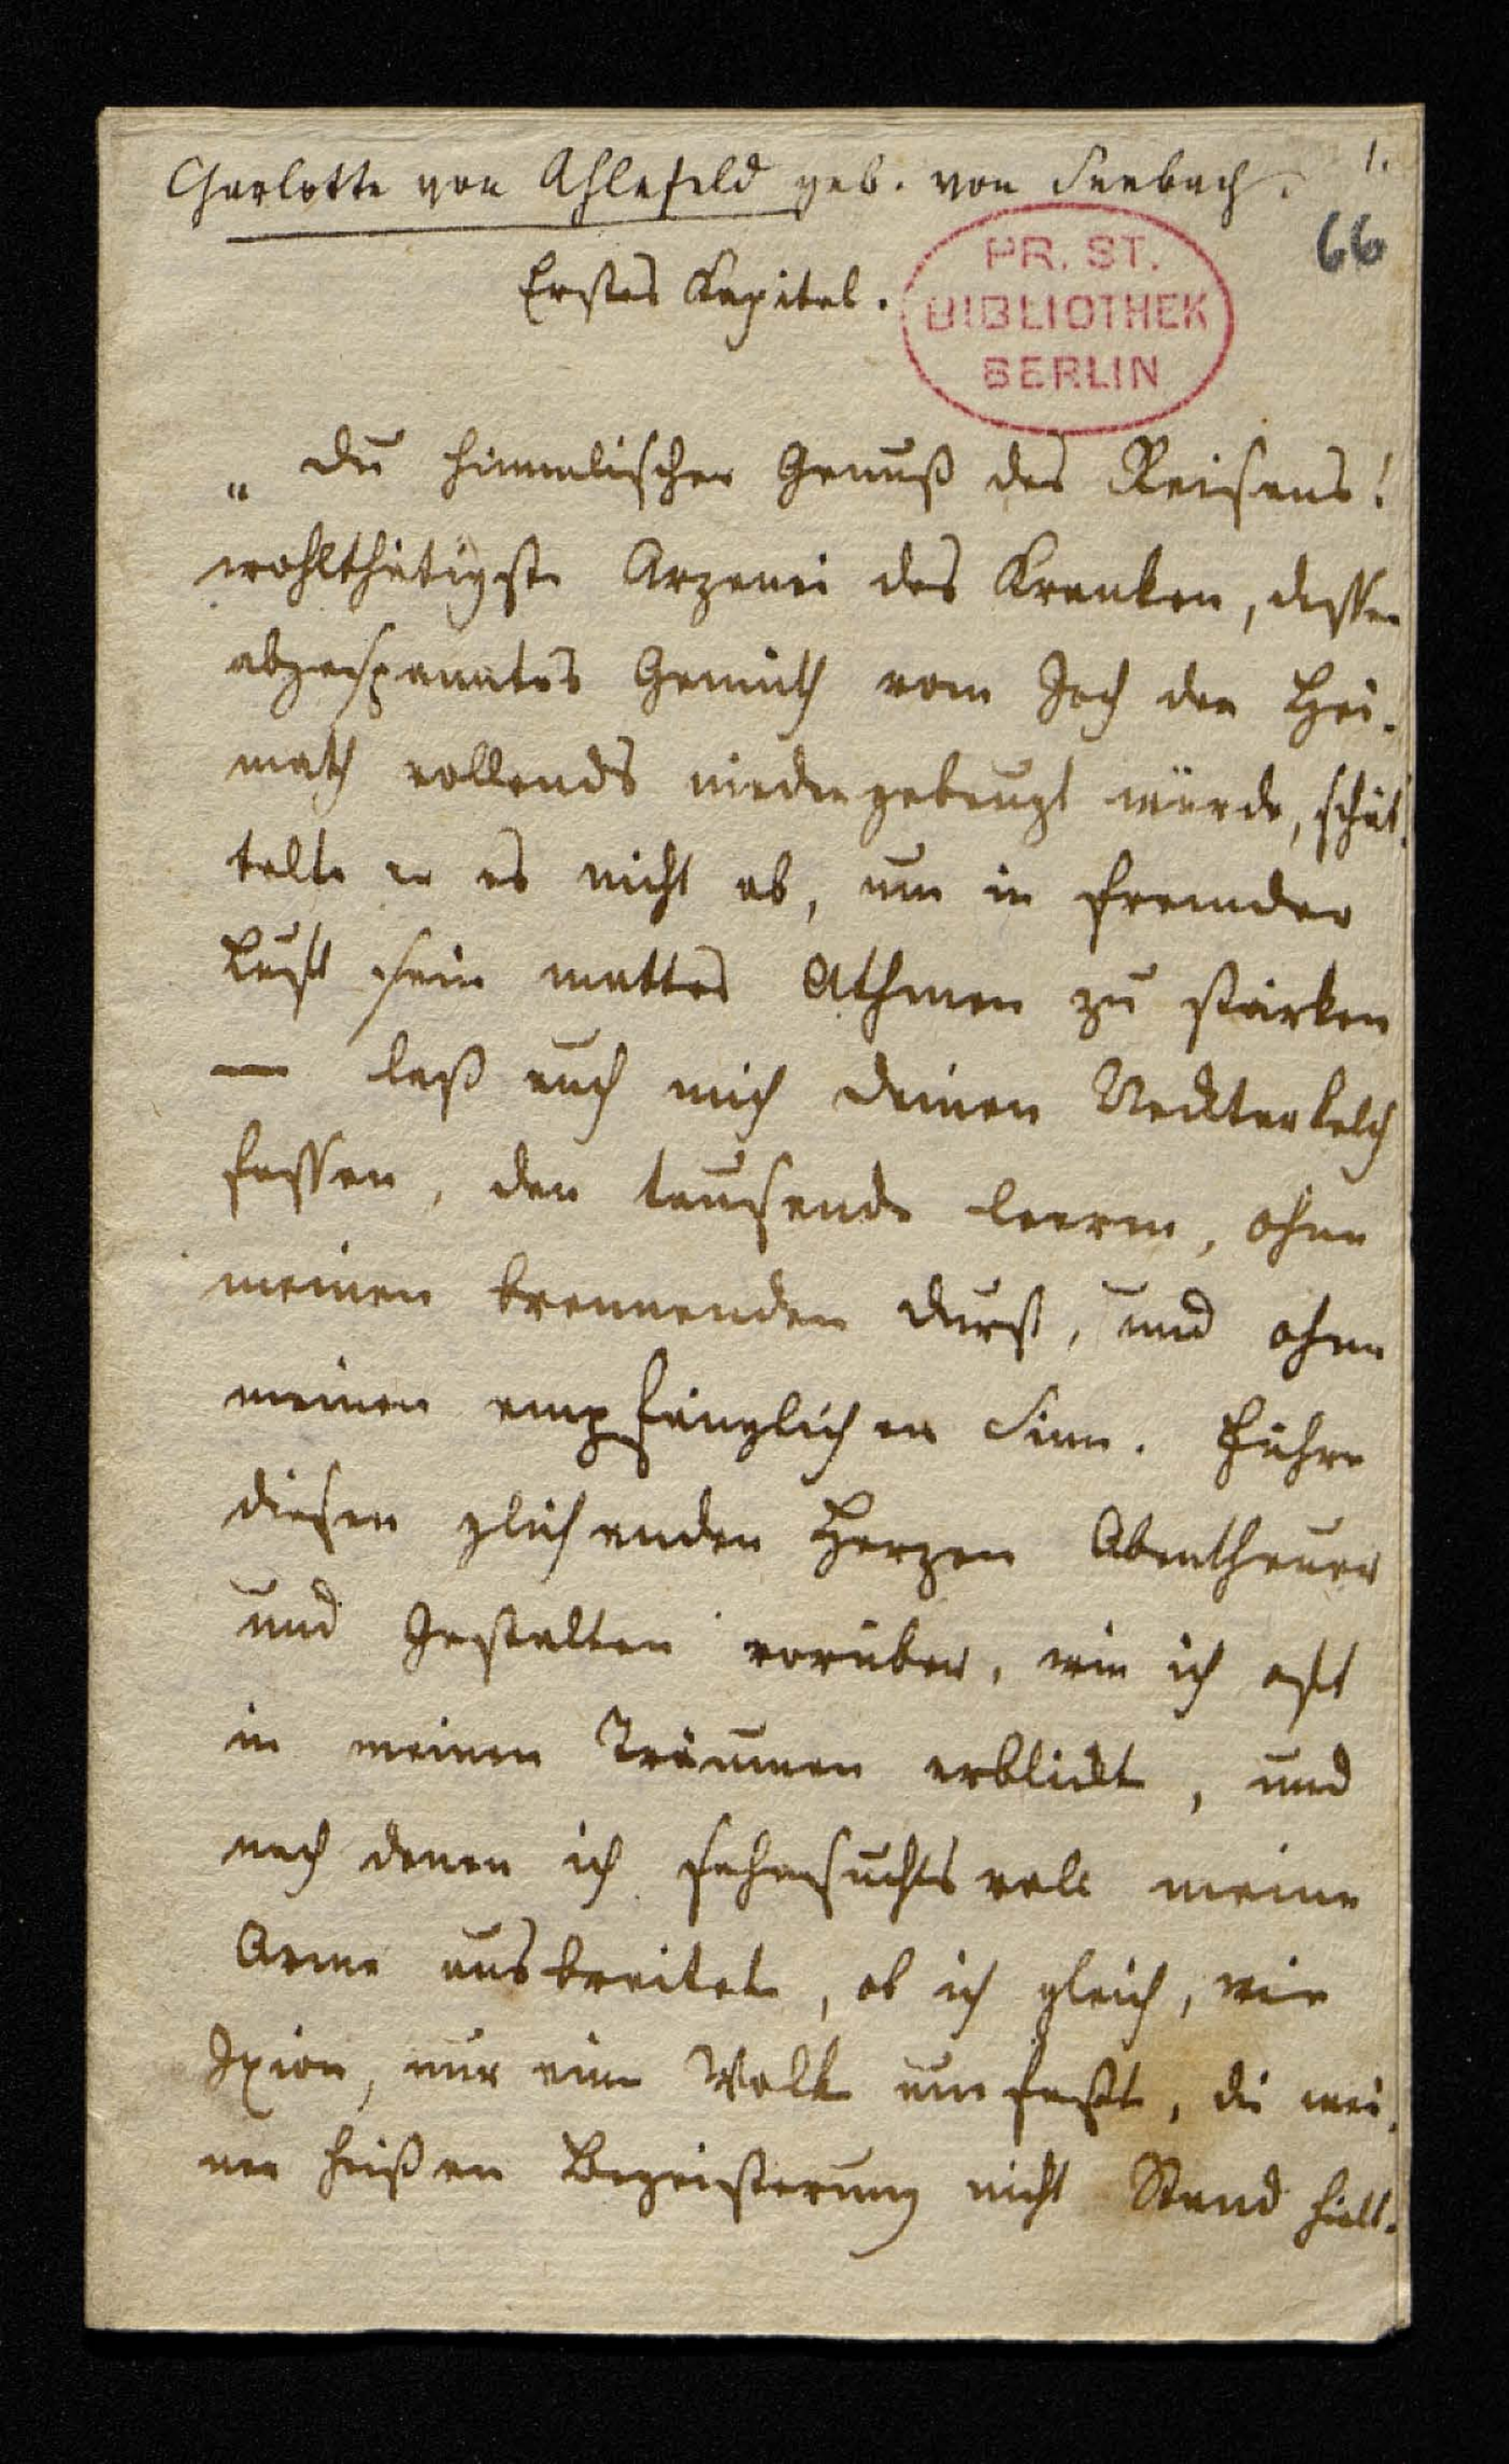 Charlotte von Ahlefeld geb. von Seebach.
1.
66
PR. ST.
BIBLIOTHEK
BERLIN
Erstes Kapitel.
„Du himmlischer Genuß des Reisens!
wohlthätigste Arzenei des Kranken, dessen
abgespanntes Gemüth vom Joch der Hei-
math vollends niedergebeugt würde, schüt-
telte er es nicht ab, um in fremder
Luft sein mattes Athmen zu stärken
— laß auch mich deinen Necktarkelch
fassen, den tausende leeren, ohne
meinen brennenden Durst, und ohne
meinen empfänglichen Sinn. Führe
diesen glühenden Herzen Abentheuer
und Gestalten vorüber, wie ich oft
in meinen Träumen erblickte, und
nach denen ich sehnsuchtsvoll meine
Arme ausbreitete, ob ich gleich, wie
Ixion, nur eine Wolke umfaßte, die mei-
ner heißen Begeisterung nicht Stand hielt.